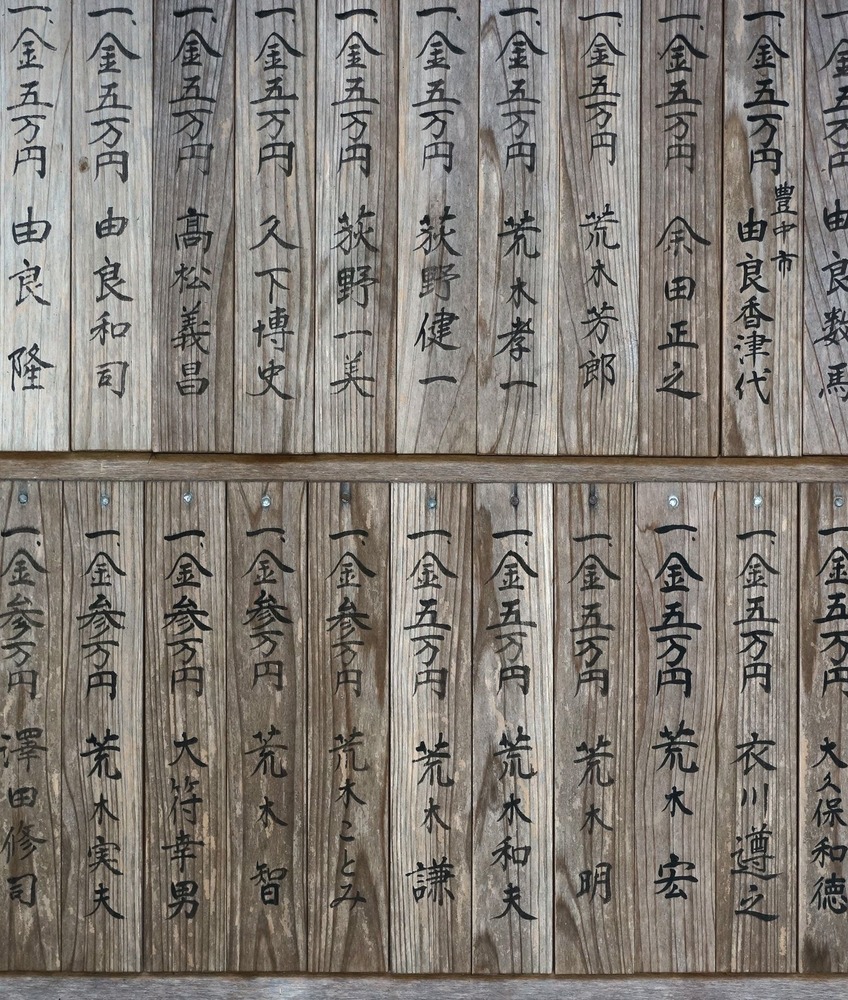 一、金五万円 由良数馬
一、金五万円 豊中市 由良香津代
一、金五万円 余田正之
一、金五万円 荒木芳郎
一、金五万円 荒木孝一
一、金五万円 荻野健一
一、金五万円 荻野一美
一、金五万円 久下博史
一、金五万円 高松義昌
一、金五万円 由良和司
一、金五万円 由良隆
一、金五万円 大久保和徳
一、金五万円 衣川遵之
一、金五万円 荒木宏
一、金五万円 荒木明
一、金五万円 荒木和夫
一、金五万円 荒木謙
一、金参万円 荒木ことみ
一、金参万円 荒木智
一、金参万円 大符幸男
一、金参万円 荒木実夫
一、金参万円 澤田修司